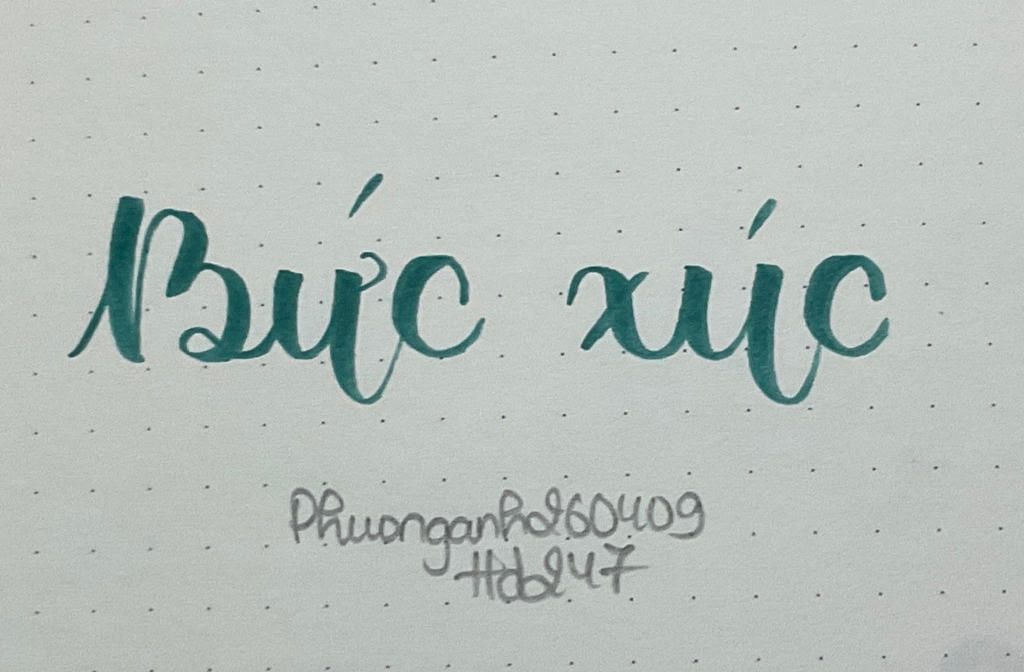 Bức xúc
Phuonganh260409
Hdb247